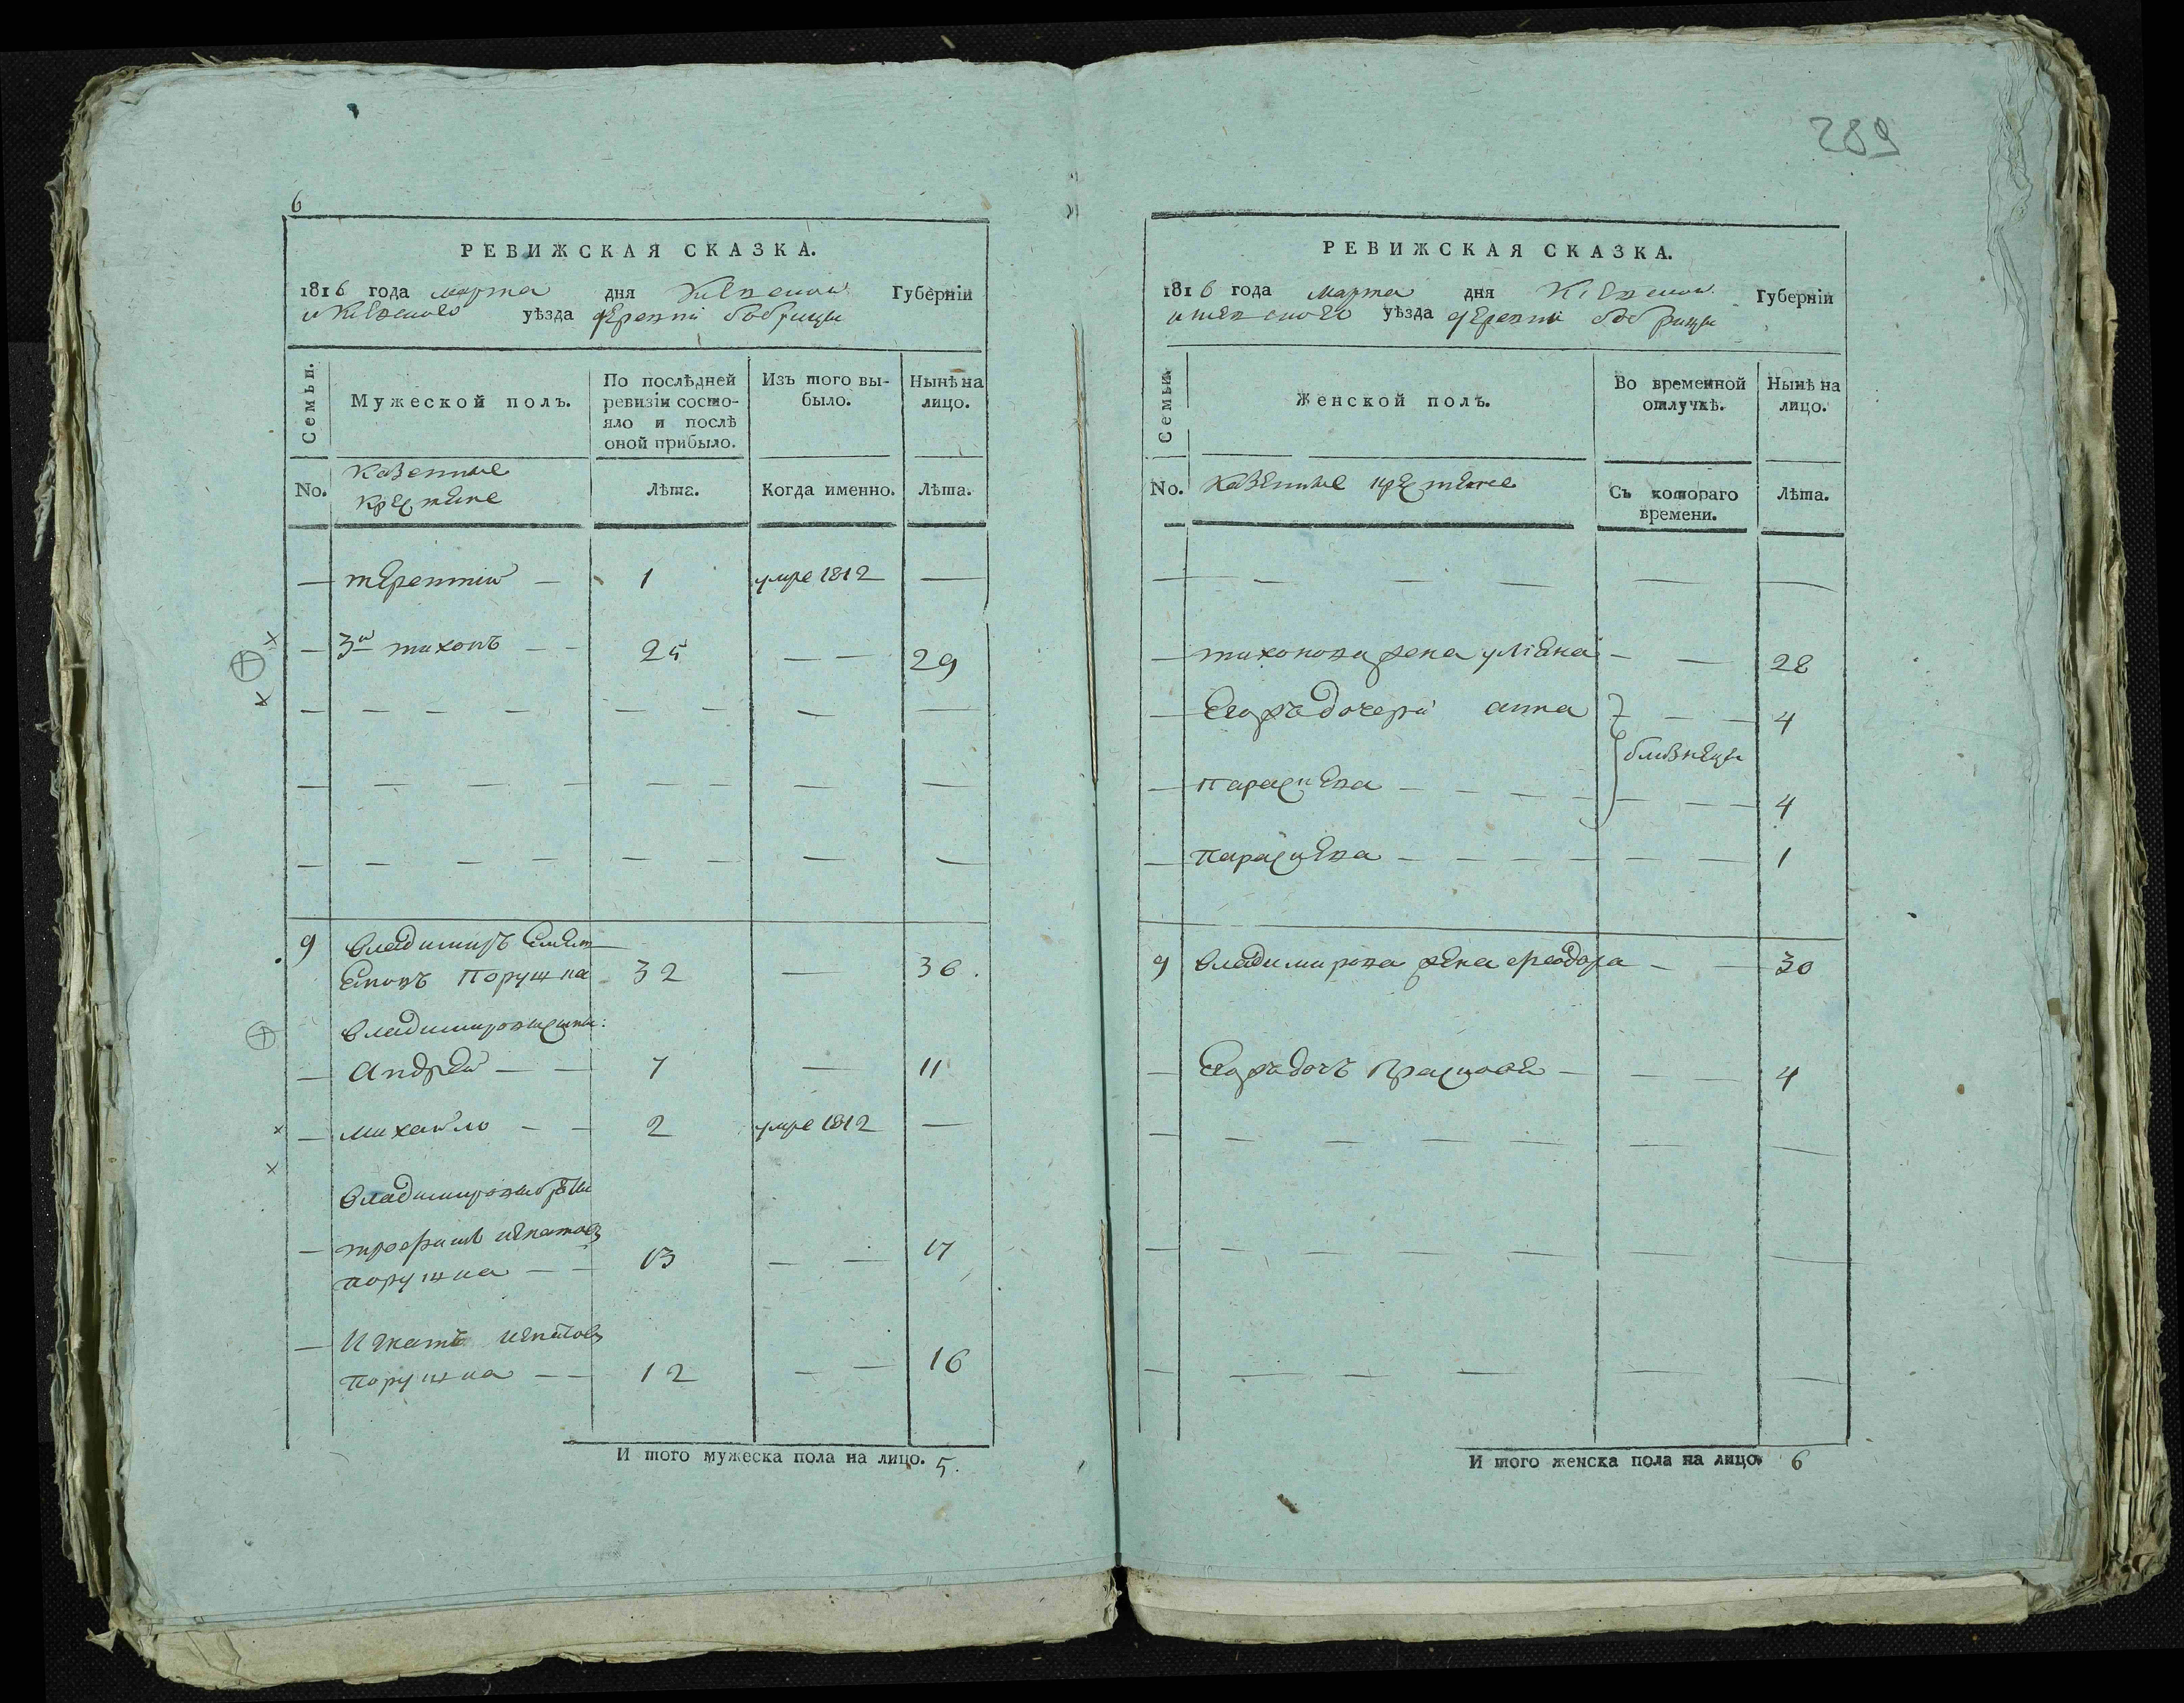 289
6
РЕВИЖСКАЯ СКАЗКА.
1816 года марта дня Киевской Губерніи
и Киевского уѣзда деревни бобрицы
Семьи.
Мужеской полъ.
По послѣдней ревизіи состояло и послѣ оной прибыло.
Изъ того выбыло.
Нынѣ на лицо.
No.
казенные
крестяне
Лѣта.
Когда именно.
Лѣта.
— терентий — 1 умре 1812 —
— 3й тихонъ — — 25 — — 29
9 владимиръ
Порушка 32 — 36.
владимировы сыны:
— андрей — — 7 — 11
— михайло — — 2 умре 1812 —
владимировы
— трофимъ игнатовъ
порушка — — 13 — — 17
— Игнатъ игнатовъ
порушка — — 12 — — 16
И того мужеска пола на лицо. 5.
РЕВИЖСКАЯ СКАЗКА.
1816 года марта дня Киевской Губерніи
и киевского уѣзда деревни бобрицы
Семьи.
Женской полъ.
Во временной отлучкѣ.
Нынѣ на лицо.
No.
казенные крестяне
Съ котораго времени.
Лѣта.
— тихонова жена улiяна — — 28
— Егожъ дочери анна — — 4
близнецы
— параскева — — — — — — 4
— параскева — — — — — — 1
9 владимирова жена феодора — — 30
— Егожъ дочъ Прасковя — — — 4
И того женска пола на лицо 6